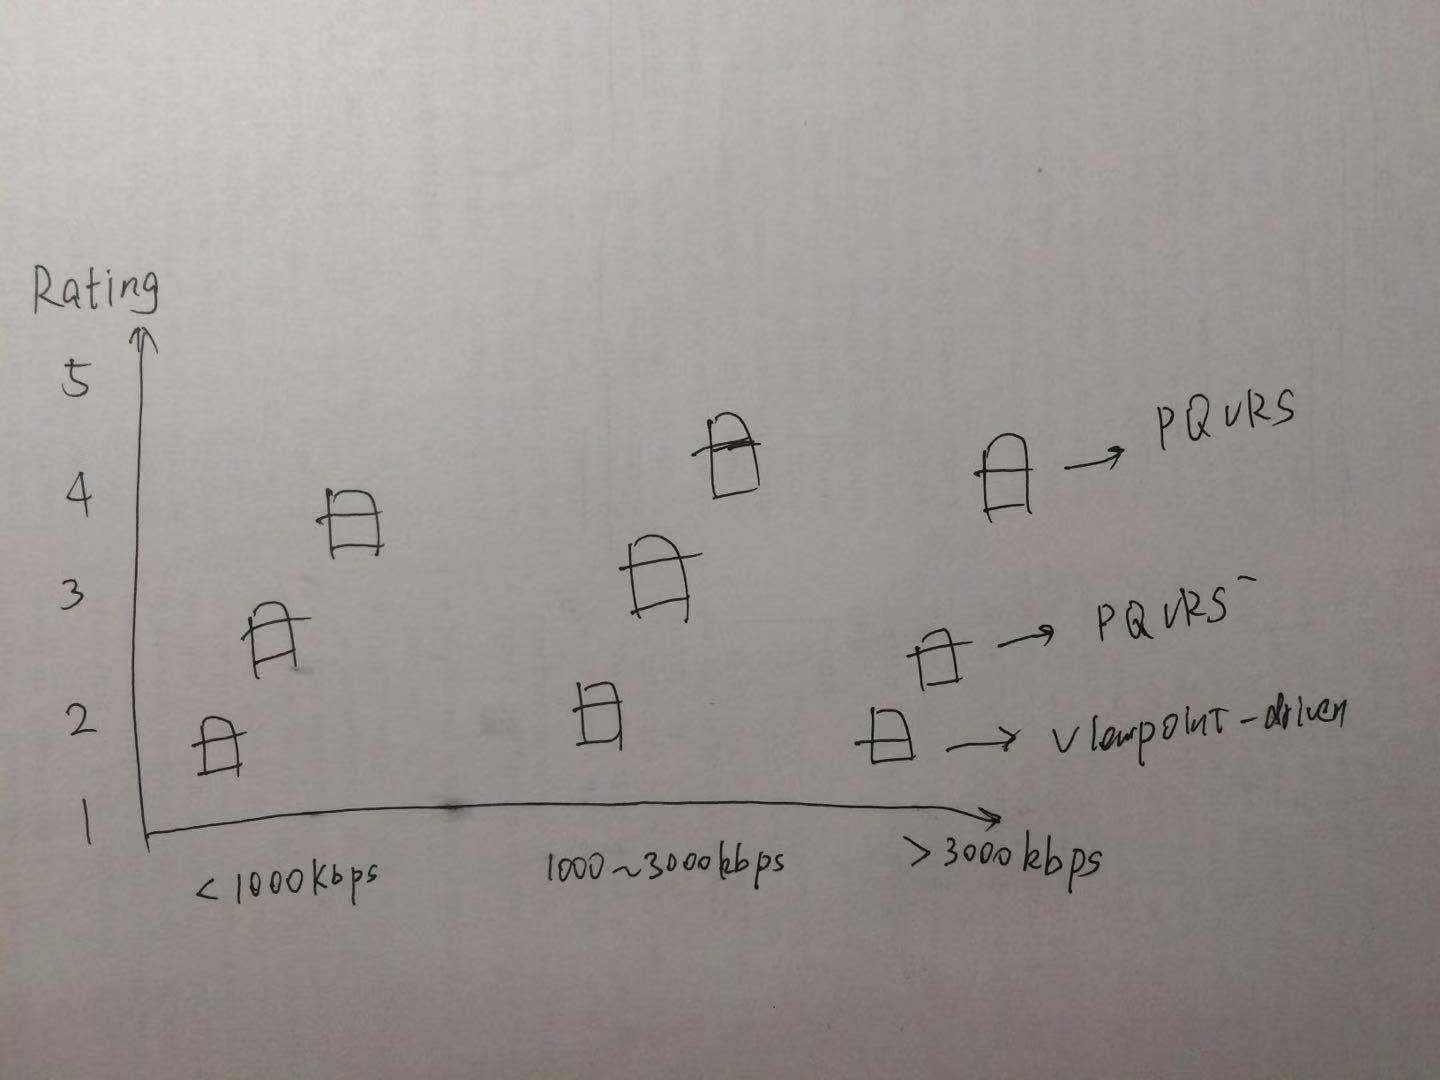 Rating
5
4
3
2
1
PQVRS
PQVRS-
Viewpoint-driven
<1000Kbps
1000~3000kbps
>3000kbps